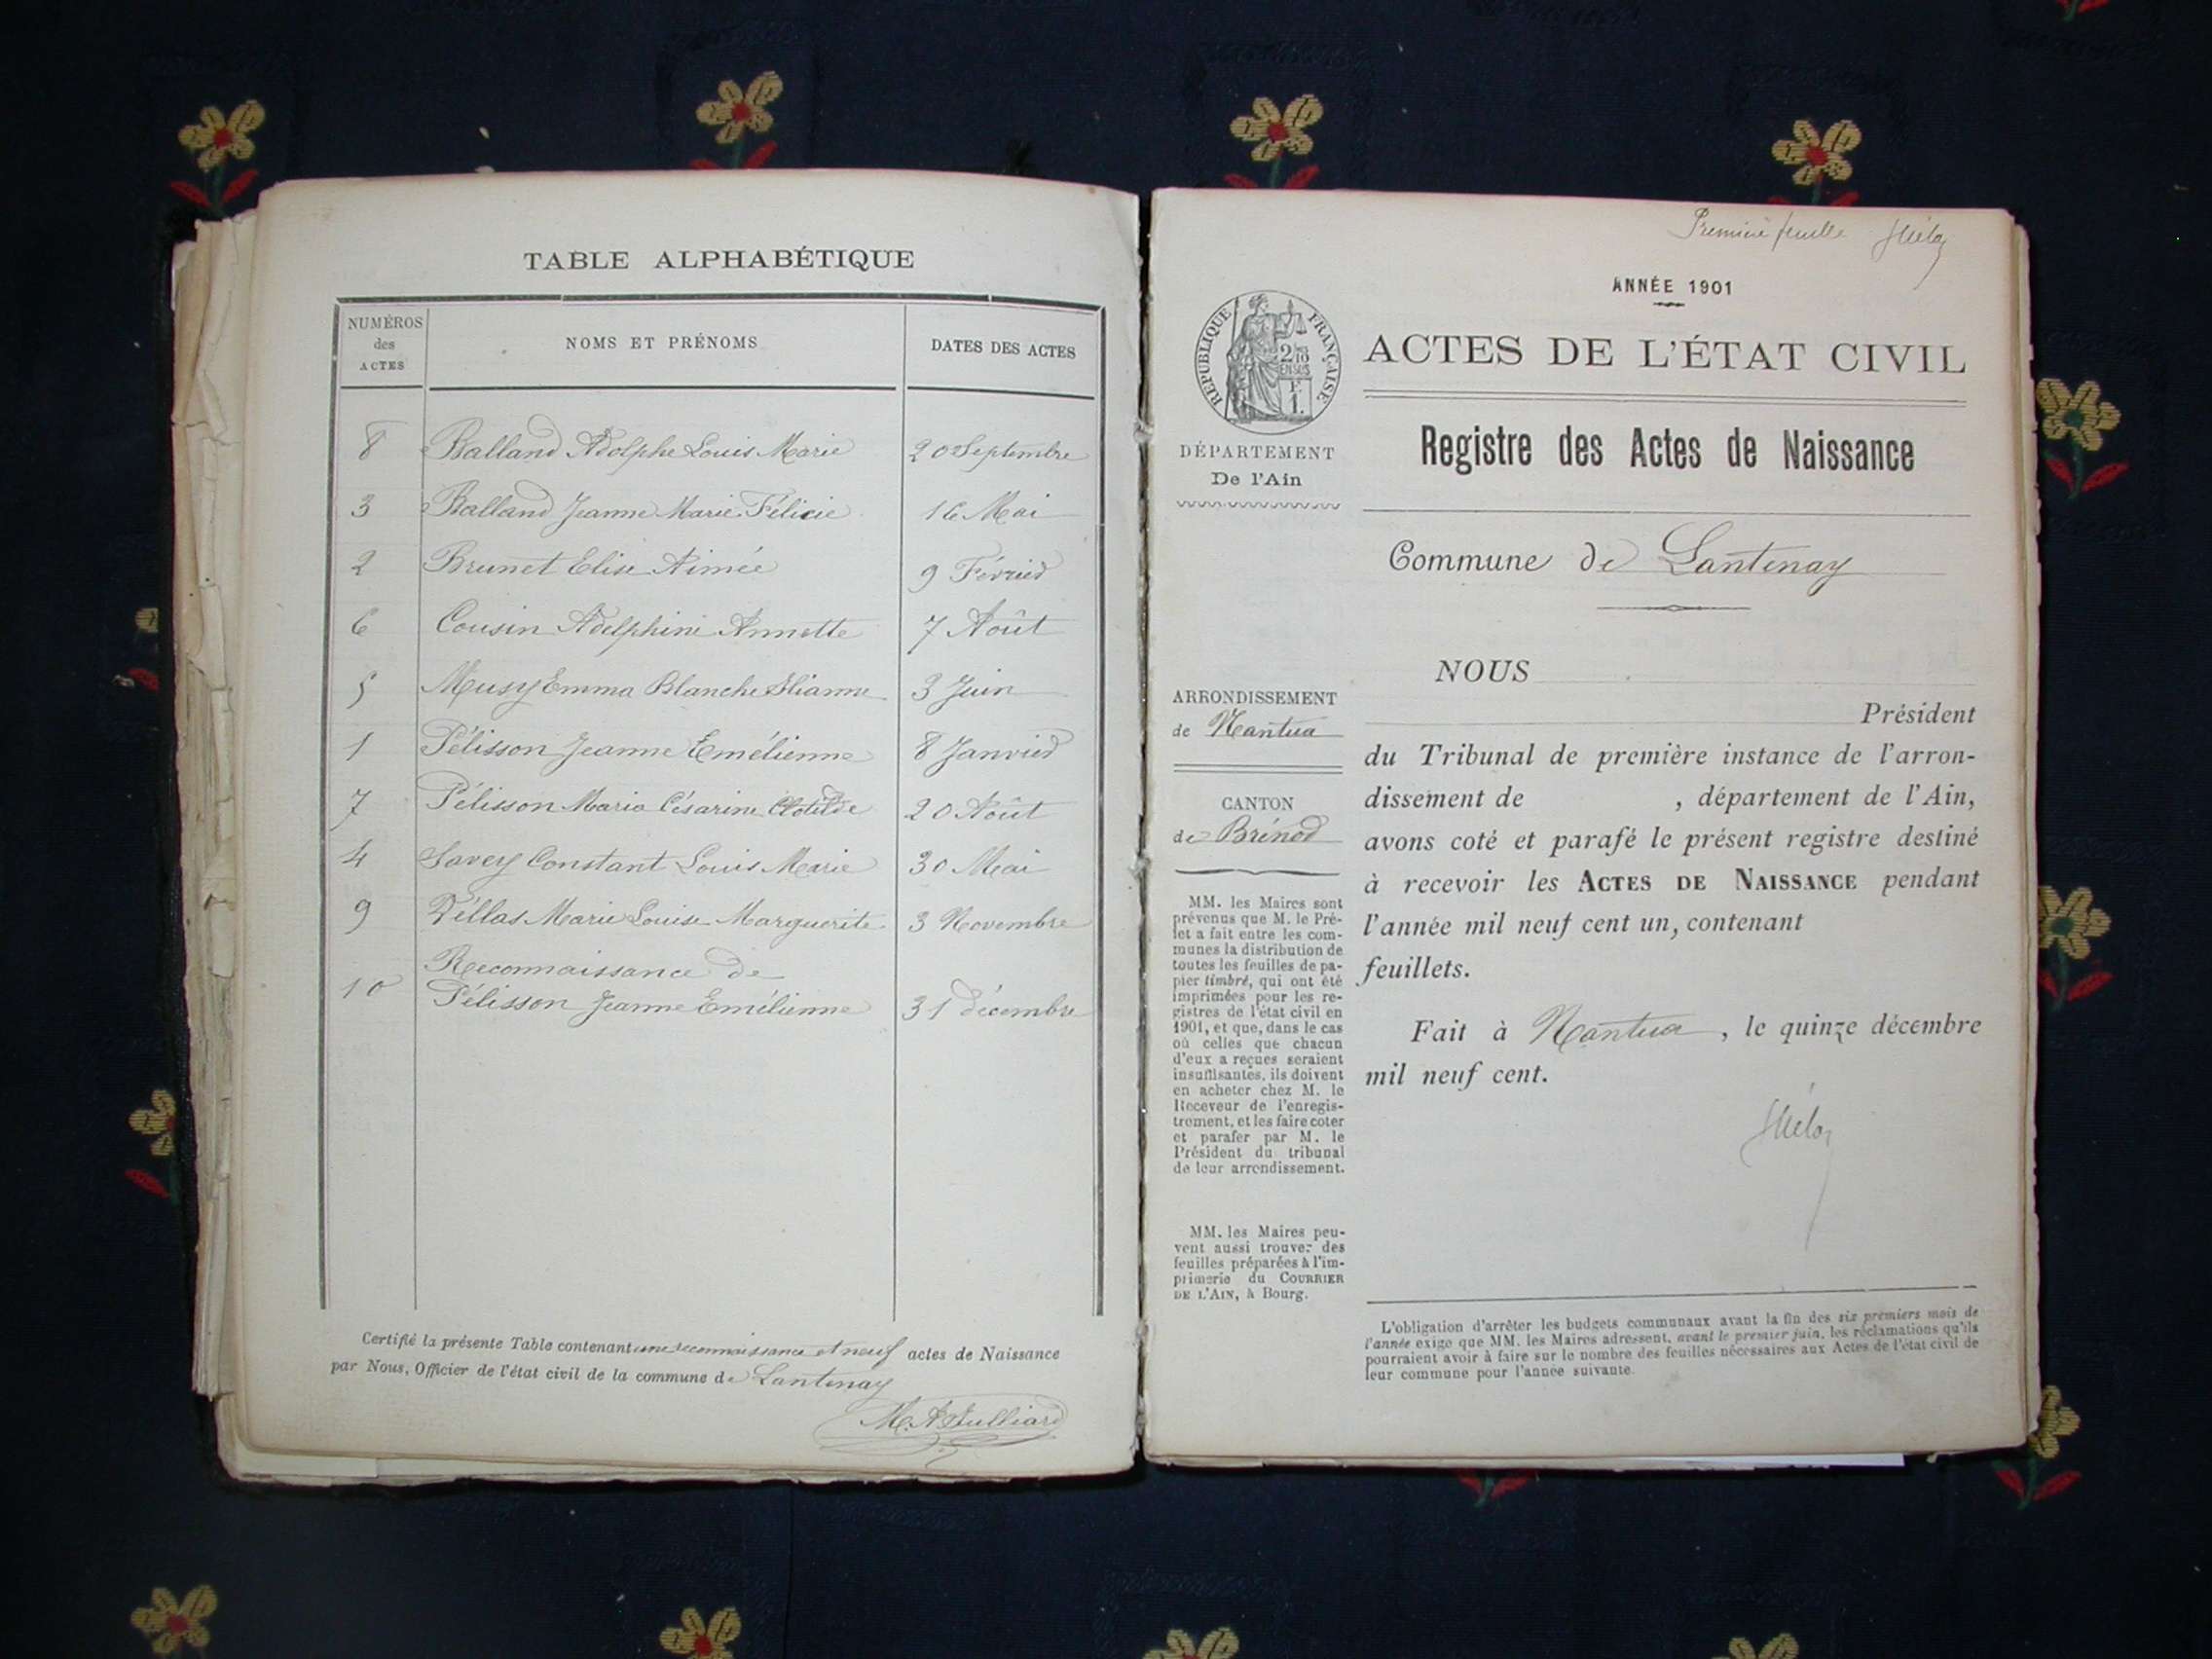 TABLE ALPHABÉTIQUE
NUMÉROS
des
ACTES
NOMS ET PRÉNOMS
DATES DES ACTES
8 Balland Adolphe Louis Marie 20 Septembre
3 Balland Jeanne Marie Félicie 16 Mai
2 Brunet Elise Aimée 9 Février
6 Cousin Adelphine Annette 7 Août
5 Musy Emma Blanche 3 Juin
1 Pélisson Jeanne Emélienne 8 Janvier
7 Pélisson Maria Césarine Clotilde 20 Août
4 Savey Constant Louis Marie 30 Mai
9 Marie Louise Marguerite 3 Novembre
Reconnaissance de
10 Pélisson Jeanne Emélienne 31 décembre
Certifié la présente Table contenant une reconnaissance et neuf actes de Naissance
par Nous, Officier de l'état civil de la commune de Lantenay
Première feuille
ANNÉE 1901
RÉPUBLIQUE FRANÇAISE
ACTES DE L'ÉTAT CIVIL
DÉPARTEMENT
De l'Ain
Registre des Actes de Naissance
Commune de Lantenay
ARRONDISSEMENT
de Nantua
CANTON
de Brénod
MM. les Maires sont
prévenus que M. le Pré-
fet a fait entre les com-
munes la distribution de
toutes les feuilles de pa-
pier timbré, qui ont été
imprimées pour les re-
gistres de l'état civil en
1901, et que, dans le cas
où celles que chacun
d'eux a reçues seraient
insuffisantes, ils doivent
en acheter chez M. le
Receveur de l'enregis-
trement, et les faire coter
et parafer par M. le
Président du tribunal
de leur arrondissement.
MM. les Maires peu-
vent aussi trouver des
feuilles préparées à l'im-
primerie du COURRIER
DE L'AIN, à Bourg.
NOUS
Président
du Tribunal de première instance de l'arron-
dissement de , département de l'Ain,
avons coté et parafé le présent registre destiné
à recevoir les ACTES DE NAISSANCE pendant
l'année mil neuf cent un, contenant
feuillets.
Fait à Nantua, le quinze décembre
mil neuf cent.
L'obligation d'arrêter les budgets communaux avant la fin des six premiers mois de
l'année exige que MM. les Maires adressent, avant le premier juin, les réclamations qu'ils
pourraient avoir à faire sur le nombre des feuilles nécessaires aux Actes de l'état civil de
leur commune pour l'année suivante.